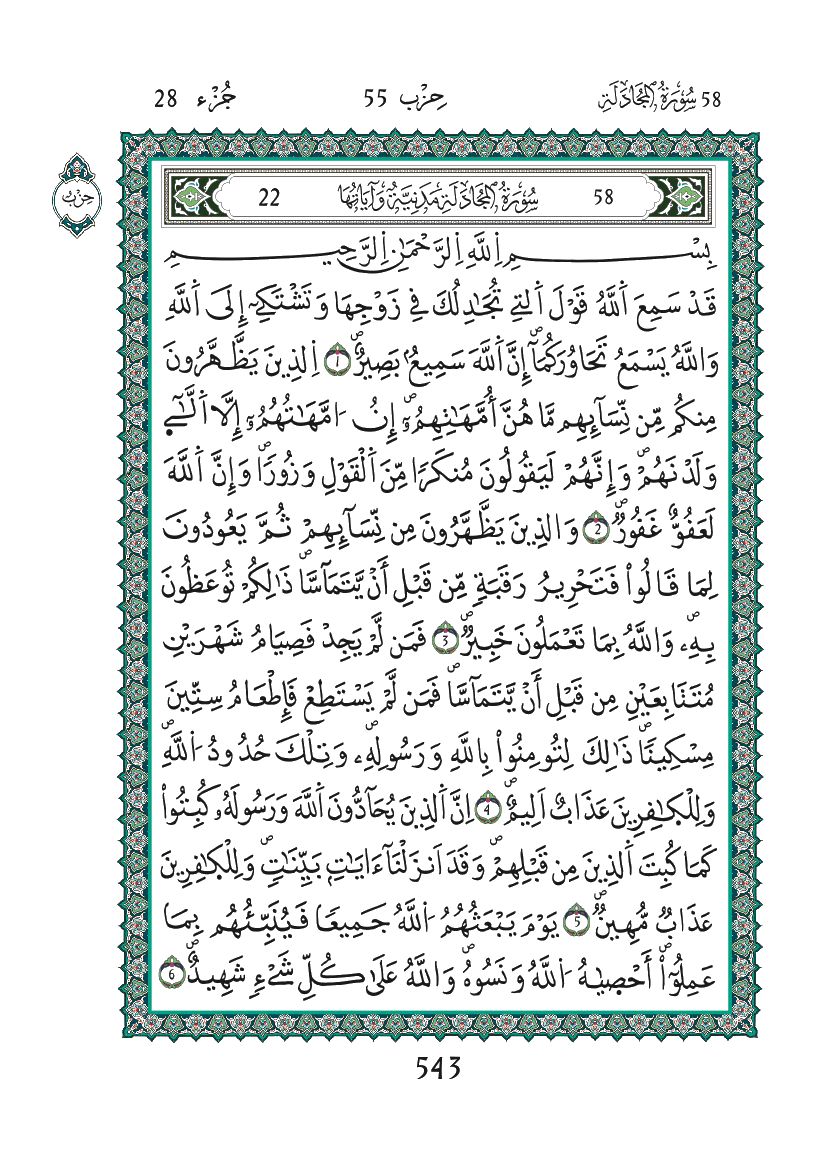 58 سُورَةُ الْمُجَادَلَةِ حِزْب 55 جُزْء 28
حِزْب
58 سُورَةُ الْمُجَادَلَةِ مَدَنِيَّة وَءَايَاتُهَا 22
بِسْمِ اِللَّهِ اِلرَّحْمَٰنِ اِلرَّحِيمِ
قَدْ سَمِعَ اَللَّهُ قَوْلَ اَلتِے تُجَٰدِلُكَ فِے زَوْجِهَا وَتَشْتَكِےٓ إِلَى اَللَّهِ
وَاللَّهُ يَسْمَعُ تَحَاوُرَكُمَآۖ إِنَّ اَللَّهَ سَمِيعُۢ بَصِيرٌۖ 1 اِلذِينَ يَظَّهَّرُونَ
مِنكُم مِّن نِّسَآئِهِم مَّا هُنَّ أُمَّهَٰتِهِمُۥٓۖ إِنُ ا۟مَّهَٰتُهُمُۥٓ إِلَّا اَلَّٰٓـِٕے
وَلَدْنَهُمْۖ وَإِنَّهُمْ لَيَقُولُونَ مُنكَرًا مِّنَ اَلْقَوْلِ وَزُورًاۖ وَإِنَّ اَللَّهَ
لَعَفُوٌّ غَفُورٌۖ 2 وَالذِينَ يَظَّهَّرُونَ مِن نِّسَآئِهِمْ ثُمَّ يَعُودُونَ
لِمَا قَالُواْ فَتَحْرِيرُ رَقَبَةٍ مِّن قَبْلِ أَنْ يَّتَمَآسَّاۖ ذَٰلِكُمْ تُوعَظُونَ
بِهِۦۖ وَاللَّهُ بِمَا تَعْمَلُونَ خَبِيرٌۖ 3 فَمَن لَّمْ يَجِدْ فَصِيَامُ شَهْرَيْنِ
مُتَتَابِعَيْنِ مِن قَبْلِ أَنْ يَّتَمَآسَّاۖ فَمَن لَّمْ يَسْتَطِعْ فَإِطْعَامُ سِتِّينَ
مِسْكِينًاۖ ذَٰلِكَ لِتُومِنُواْ بِاللَّهِ وَرَسُولِهِۦۖ وَتِلْكَ حُدُودُ اُللَّهِۖ
وَلِلْكٰ۪فِرِينَ عَذَابٌ اَلِيمٌۖ 4 اِنَّ اَلذِينَ يُحَآدُّونَ اَللَّهَ وَرَسُولَهُۥ كُبِتُواْ
كَمَا كُبِتَ اَلذِينَ مِن قَبْلِهِمْۖ وَقَدَ اَنزَلْنَآ ءَايَٰتِۢ بَيِّنَٰتٖۖ وَلِلْكٰ۪فِرِينَ
عَذَابٌ مُّهِينٌۖ 5 يَوْمَ يَبْعَثُهُمُ اُللَّهُ جَمِيعًا فَيُنَبِّئُهُم بِمَا
عَمِلُوٓاْۖ أَحْص۪يٰهُ اُللَّهُ وَنَسُوهُۖ وَاللَّهُ عَلَىٰ كُلِّ شَےْءٍ شَهِيدٌۖ 6
543